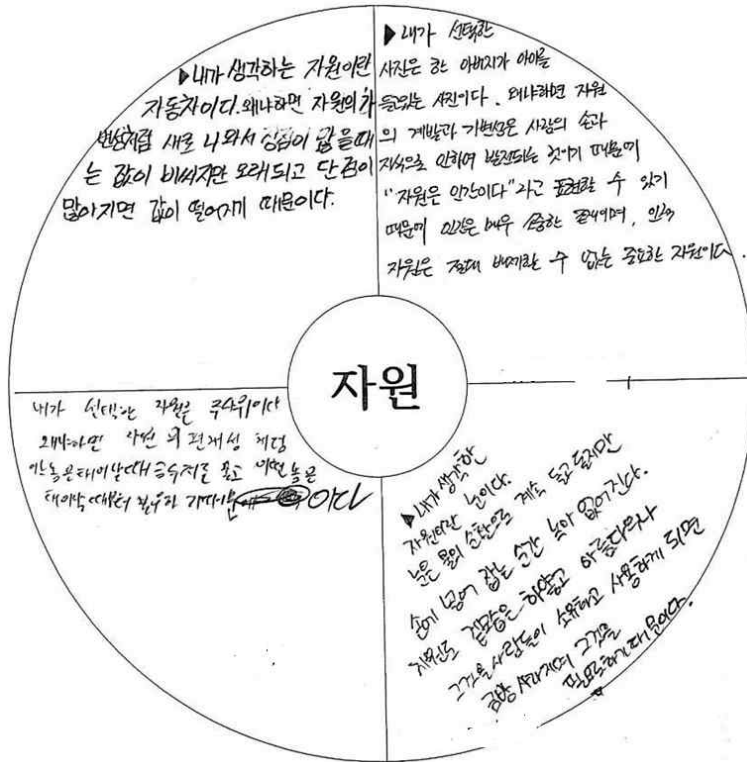 ▶내가 생각하는 자원이란
자동차이다. 왜냐하면 자원의 가
변성처럼 새로 나와서 장점이 많을때
는 값이 비싸지만 오래되고 단점이
많아지면 값이 떨어지기 때문이다.
▶내가 선택한
사진은 한 아버지가 아이를
들고있는 사진이다. 왜냐하면 자원
의 개발과 가변성은 사람의 손과
지식으로 인하여 발전되는 것이기 때문에
"자원은 인간이다"라고 표현할 수 있기
때문에 인간은 매우 소중한 존재이며, 인적
자원은 절대 배제할 수 없는 중요한 자원이다.
자원
내가 선택한 자원은 국수위이다
왜냐하면 자원의 편재성
태어날때 금수저를 물고 어떤 놈은
태어날 때부터 이다
▶내가 생각한
자원이란 눈이다.
눈은 물의 순환으로 계속 돌고 돌지만
손에 넣어 잡는 순간 녹아 없어진다.
자원도 겉핥은 하얗고 아름다우나
그것을 사람들이 소유하고 사용하게 되면
금방 사라지며 그것을
필요로하기 때문이다.